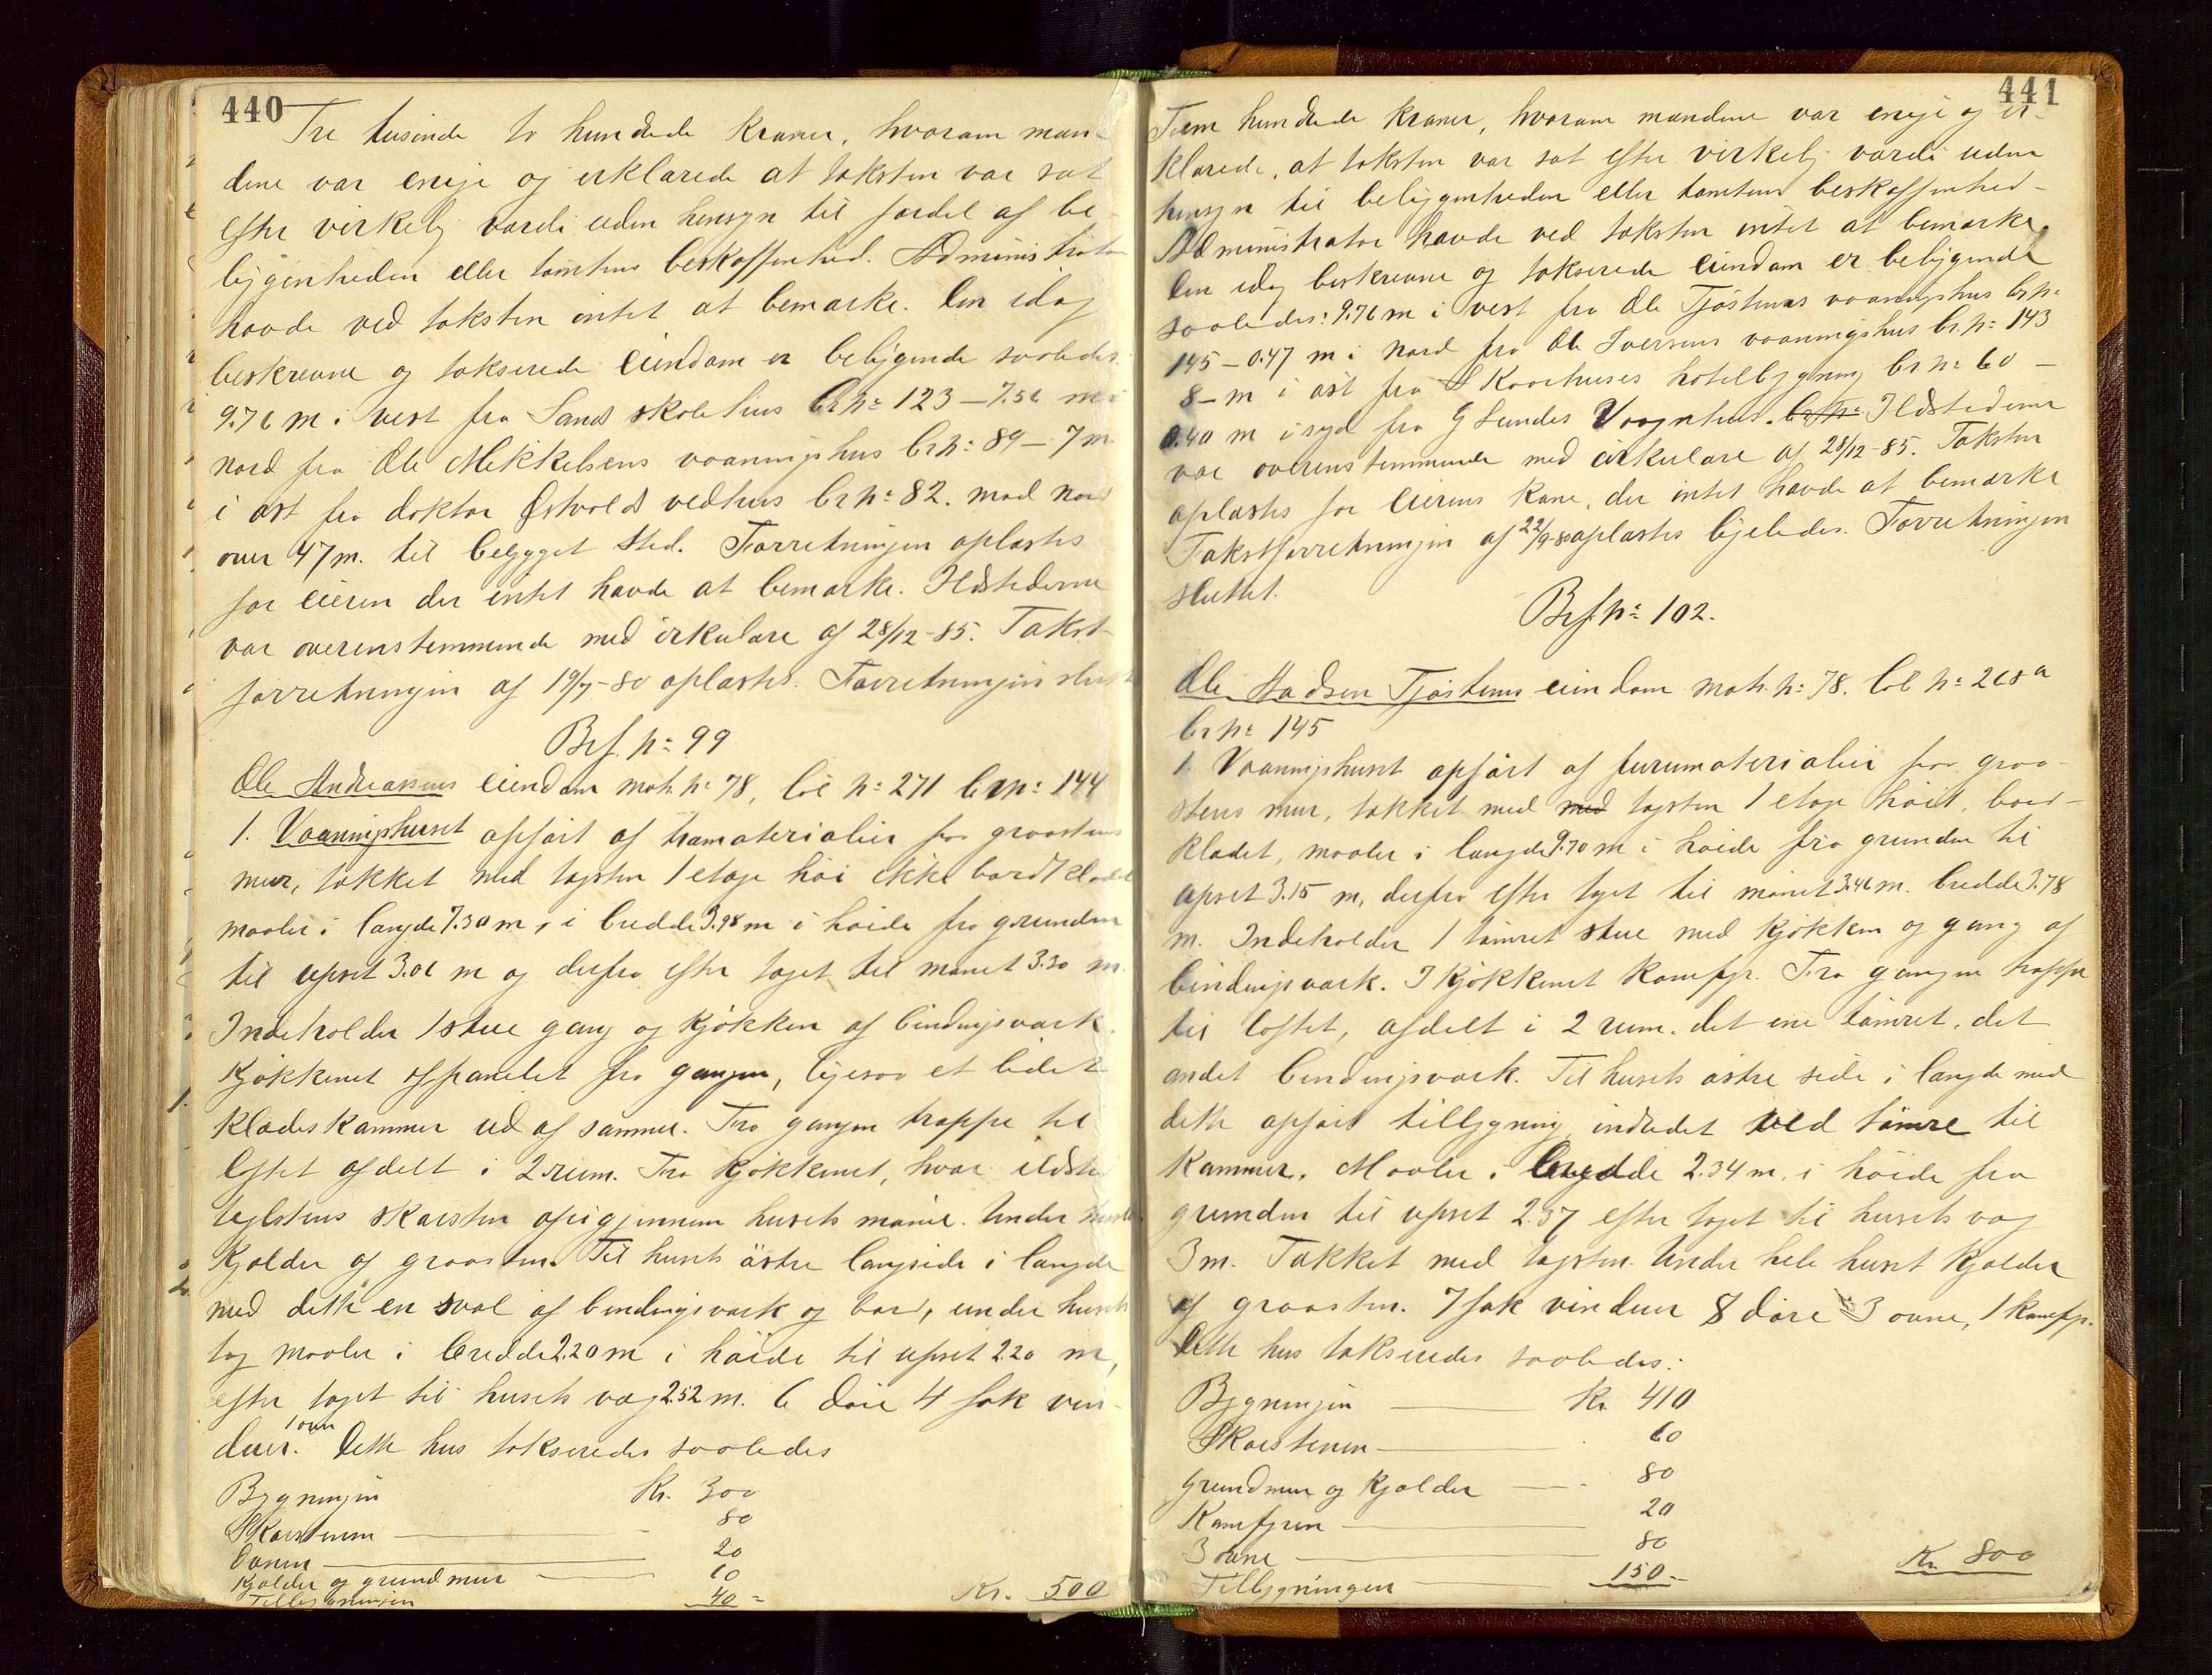 440
Tre tusende to hundrede kroner, hvorom mæn-
dene var enige og erklærede at taksten var sat
efter virkelig værdi uden hensyn til fordel af be-
liggenheden eller tomtens beskaffenhed. Administrator
havde ved taksten intet at bemærke. Den idag
beskrevne og takserede eiendom er beliggende saaledes
9.76 m i vest fra Sands skolehus br nº 123 – 7.56 m i
nord fra Ole Mikkelsens vaaningshus br nº 89 – 7 m
i øst fra doktor Østvolds vedhus br nº 82. mod nord
over 47 m. til bebygget sted. Forretningen oplæstes
for eieren der intet havde at bemærke. Ildstederne
var overensstemmende med cirkulære af 28/12-85. Takst-
forretningen af 19/7-80 oplæstes. Forretningen slut
Brf. nº 99
Ole Andreassens eiendom matr. nº 78, löb nº 271 br nº 144
1. Vaaningshuset opført af træmaterialier paa graastens
mur, tækket med tagsten 1 etage høi ikke bordklædt
maaler i længde 7.30 m, i bredde 3.98 m i høide fra grunden
til upset 3.06 m og derfra efter taget til mønet 3.30 m.
Indeholder 1 stue gang og kjøkken af bindingsværk.
Kjøkkenet afpanelet fra gangen, ligesaa et lidet
klædeskammer ud af samme. Fra gangen trappe til
loftet afdelt i 2 rum. Fra kjøkkenet, hvor ildsted
teglstens skorsten op igjennem husets møne. Under huset
kjælder af graasten. Til husets østre langside i længde
med dette en sval af bindingsværk og bord, under husets
tag maaler i bredde 2.20 m i høide til upset 2.20 m,
efter taget til husets væg 2.52 m. 6 døre 4 fak vin-
1 ovn
duer. Dette hus takseredes saaledes
Bygningen Kr. 300
Skorstenen 80
Ovnen 20
Kjælder og grundmur 60
Tilbygningen 40 = Kr. 500
441
Fem hundrede kroner, hvorom mændene var enige og er-
klærede, at taksten var sat efter virkelig værdi uden
hensyn til beliggenheden eller tomtens beskaffenhed –
Administrator havde ved taksten intet at bemærke.
Den idag beskrevne og takserede eiendom er beliggende
saaledes: 9.76 m i vest fra Ole Tjøstems vaaningshus br nº
145 – 0.47 m i nord fra Ole Iversens vaaningshus br. nº 143
8 – m i øst fra S Kaarhuses hotelbygning br. nº 60 –
0.40 m i syd fra G Lundes Vognhus. br nº Ildstederne
var overenstemmende med cirkulære af 28/12-85. Taksten
oplæstes for eierens kone, der intet havde at bemærke
Takstforretningen af 22/9-80 oplæstes ligeledes. Forretningen
sluttet.
Brf. nº 102.
Ole Aadsen Tjøstems eiendom matr. nº 78. löb nº 268 a
br nº 145
1 Vaaningshuset opført af furumaterialier paa graa-
stens mur, tækket med med tagsten 1 etage høit, bord-
klædet, maaler i længde 9.70 m i høide fra grunden til
upset 3.15 m, derfra efter taget til mønet 3.46 m. bredde 3.78
m. Indeholder 1 tømret stue med kjøkken og gang af
bindingsværk. I kjøkkenet komfyr. Fra gangen trappe
til loftet, afdelt i 2 rum. det ene tømret, det
andet bindingsværk. Til husets østre side i længde med
dette opført tilbygning indredet ved tømre til
kammer. Maaler i bredde 2.34 m. i høide fra
grunden til upset 2.37 efter taget til husets væg
3 m. Tækket med tagsten. Under hele huset kjælder
af graasten. 7 fak vinduer 8 døre 3 ovne, 1 komfyr.
Dette hus takseredes saaledes:
Bygningen Kr. 410
Skorstenen 60
Grundmur og kjælder 80
Komfyren 20
3 ovne 80
Tilbygningen 150 = Kr. 800